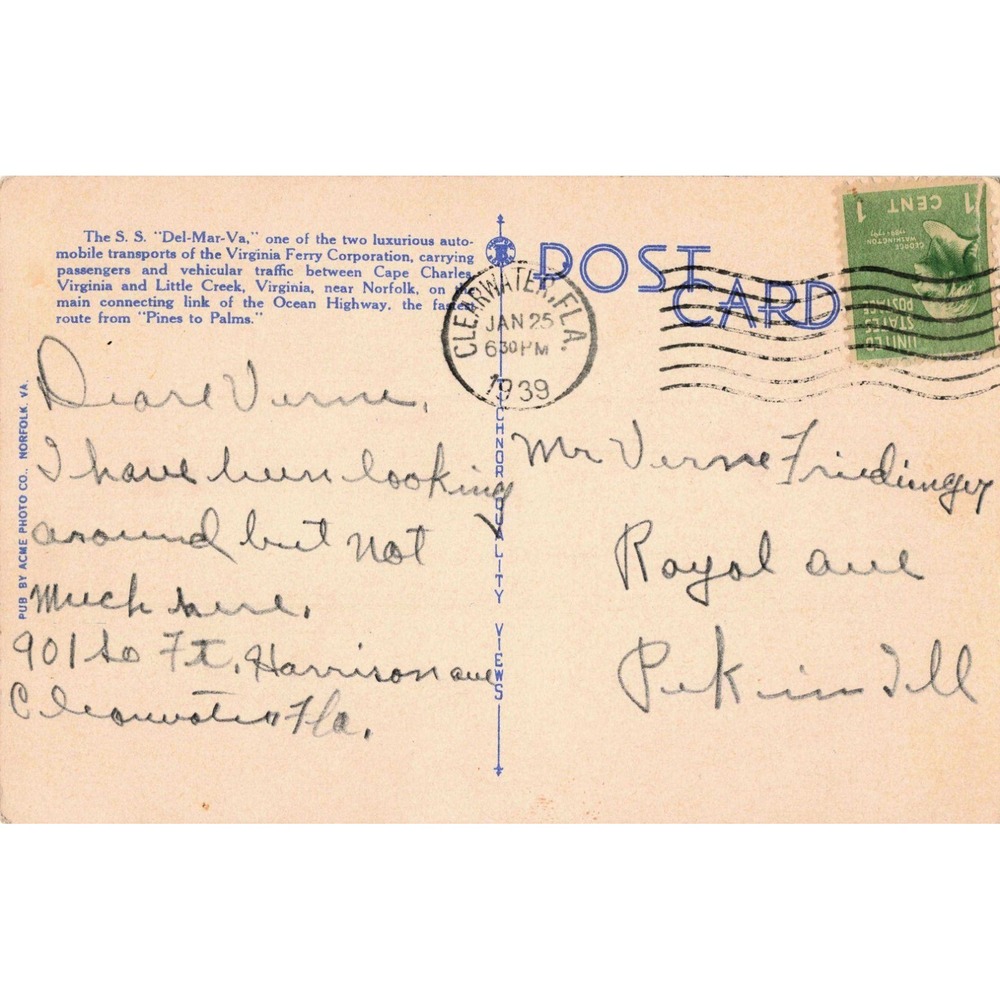 The S. S. "Del-Mar-Va," one of the two luxurious auto-
mobile transports of the Virginia Ferry Corporation, carrying
passengers and vehicular traffic between Cape Charles,
Virginia and Little Creek, Virginia, near Norfolk, on the
main connecting link of the Ocean Highway, the fastest
route from "Pines to Palms."
PUB BY ACME PHOTO CO., NORFOLK, VA.
Deare Verne,
I have been looking
around but not
much here.
901 So Ft. Harrison ave
Clearwater Fla.
TECHNOR QUALITY VIEWS
POST
CARD
CLEARWATER, FLA.
JAN 25
630 PM
1939
1 CENT 1
GEORGE
WASHINGTON
1789-1797
UNITED
STATES
POSTAGE
Mr Verne
Royal ave
Pekin Ill